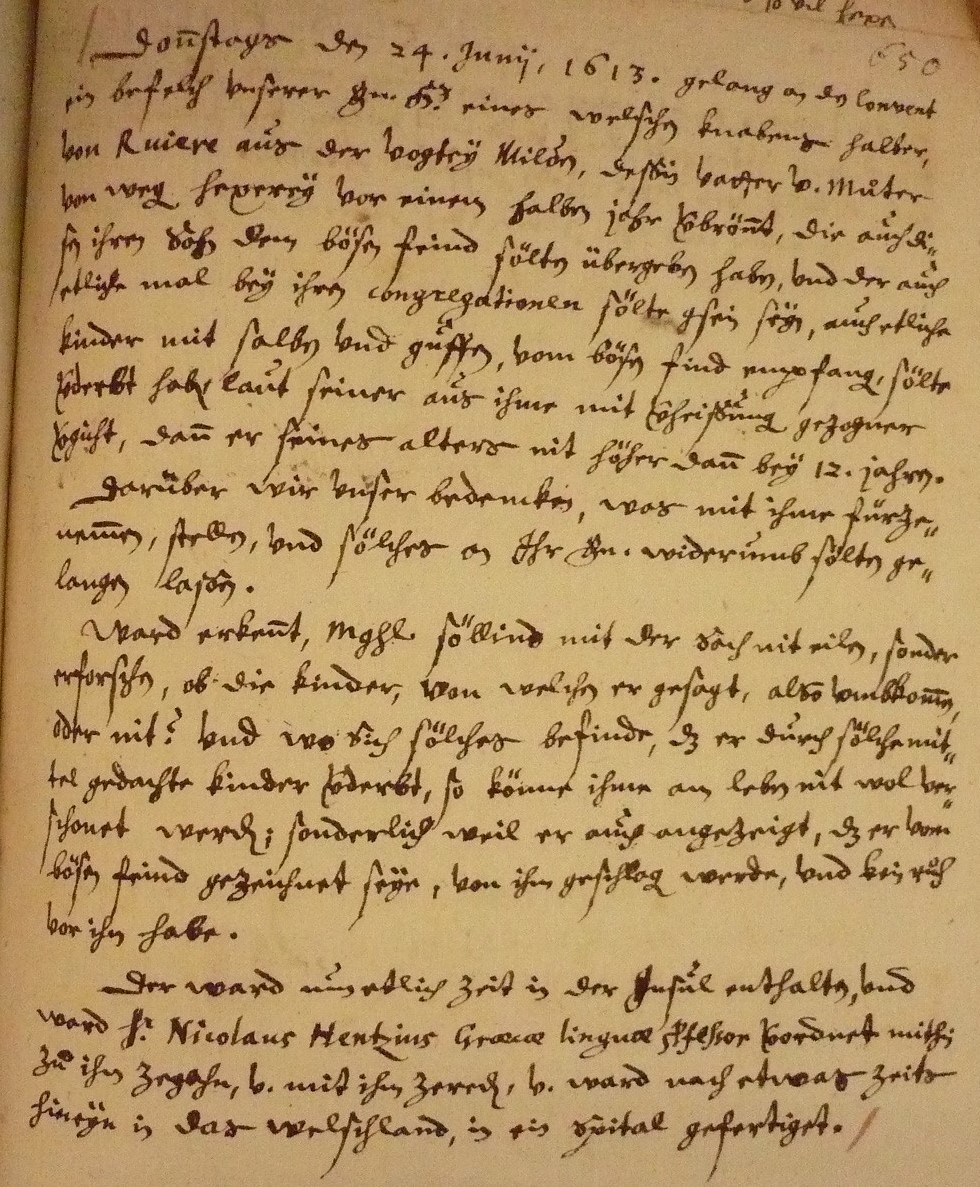 so vil
650
Donnstags den 24. Junij, 1613. gelang an den Convent
ein befelch unserer Gn. H. eines welschen knabens halber,
von Ruiere aus der vogtey Milden, dessin vatter v. Müter
von weg hexerey vor einem halben jahr vbrönt, die auch di„
sen ihren Sohn dem bösen feind sölten übergeben haben, und der auch
etliche mal bey ihren congregationen sölte gsein seyn, auch etliche
kinder mit salben und güffen, vom bösen find empfang, sölte
vderbt haben laut seiner aus ihme mit vheissüng gezogner
vgicht, dann er seines alters nit höher dann bey 12. jahren.
Darüber wir unser bedencken, was mit ihme fürze„
nemmen, stellen, und sölches an Ihr Gn. widerumb sölten ge„
langen lassen.
Ward erkennt, Mghl. söllind mit der Sach nit eilen, sonder
erforschen, ob die kinder, von welchen er gesagt, also umbkommen,
oder nit? Und wo sich sölches befinde, dz er durch sölche mit„
tel gedachte kinder vderbt, so könne ihme am leben nit wol ver„
schonet werden; sonderlich weil er auch angezeigt, dz er vom
bösen feind gezeichnet seye, von ihm geschlagen werde, und kein rüh
vor ihm habe.
Der ward nun etlich zeit in der Insul enthalten, und
ward Hr. Nicolaus Hentzius Graecae linguae Pfessor vordnet mithin
zü ihm zegahn, v. mit ihm zereden, v. ward nach etwas zeits
hineyn in das welschland, in ein Spital gefertiget.